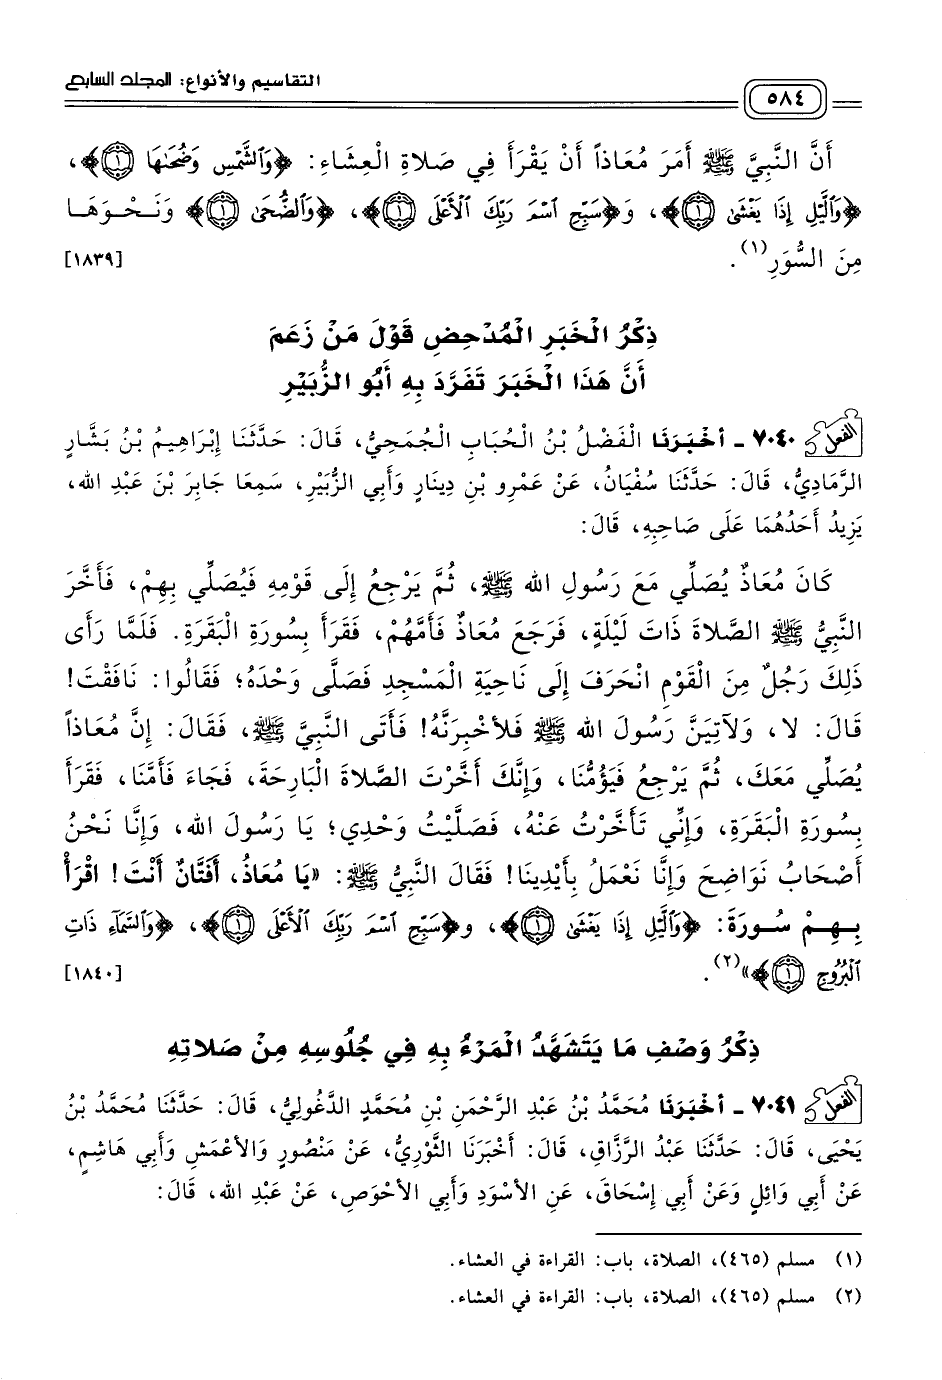 ٥٨٤ التقاسيم والأنواع: المجلد السابع
أَنَّ النَّبِيَّ ﷺ أَمَرَ مُعَاذاً أَنْ يَقْرَأَ فِي صَلاةِ الْعِشَاءِ: ﴿وَٱلشَّمْسِ وَضُحَىٰهَا ١﴾،
﴿وَٱلَّيْلِ إِذَا يَغْشَىٰ ١﴾، وَ﴿سَبِّحِ ٱسْمَ رَبِّكَ ٱلْأَعْلَى ١﴾، ﴿وَٱلضُّحَىٰ ١﴾ وَنَحْوَهَا
مِنَ السُّوَرِ(١). [١٨٣٩]
ذِكْرُ الْخَبَرِ الْمُدْحِضِ قَوْلَ مَنْ زَعَمَ
أَنَّ هَذَا الْخَبَرَ تَفَرَّدَ بِهِ أَبُو الزُّبَيْرِ
الفعل ٧٠٤٠ - أَخْبَرَنَا الْفَضْلُ بْنُ الْحُبَابِ الْجُمَحِيُّ، قَالَ: حَدَّثَنَا إِبْرَاهِيمُ بْنُ بَشَّارٍ
الرَّمَادِيُّ، قَالَ: حَدَّثَنَا سُفْيَانُ، عَنْ عَمْرِو بْنِ دِينَارٍ وَأَبِي الزُّبَيْرِ، سَمِعَا جَابِرَ بْنَ عَبْدِ الله،
يَزِيدُ أَحَدُهُمَا عَلَى صَاحِبِهِ، قَالَ:
كَانَ مُعَاذٌ يُصَلِّي مَعَ رَسُولِ الله ﷺ، ثُمَّ يَرْجِعُ إِلَى قَوْمِهِ فَيُصَلِّي بِهِمْ، فَأَخَّرَ
النَّبِيُّ ﷺ الصَّلاةَ ذَاتَ لَيْلَةٍ، فَرَجَعَ مُعَاذٌ فَأَمَّهُمْ، فَقَرَأَ بِسُورَةِ الْبَقَرَةِ. فَلَمَّا رَأَى
ذَلِكَ رَجُلٌ مِنَ الْقَوْمِ انْحَرَفَ إِلَى نَاحِيَةِ الْمَسْجِدِ فَصَلَّى وَحْدَهُ؛ فَقَالُوا: نَافَقْتَ!
قَالَ: لا، وَلآتِيَنَّ رَسُولَ الله ﷺ فَلأُخْبِرَنَّهُ! فَأَتَى النَّبِيَّ ﷺ، فَقَالَ: إِنَّ مُعَاذاً
يُصَلِّي مَعَكَ، ثُمَّ يَرْجِعُ فَيَؤُمُّنَا، وَإِنَّكَ أَخَّرْتَ الصَّلاةَ الْبَارِحَةَ، فَجَاءَ فَأَمَّنَا، فَقَرَأَ
بِسُورَةِ الْبَقَرَةِ، وَإِنِّي تَأَخَّرْتُ عَنْهُ، فَصَلَّيْتُ وَحْدِي؛ يَا رَسُولَ الله، وَإِنَّا نَحْنُ
أَصْحَابُ نَوَاضِحَ وَإِنَّا نَعْمَلُ بِأَيْدِينَا! فَقَالَ النَّبِيُّ ﷺ: «يَا مُعَاذُ، أَفَتَّانٌ أَنْتَ! اقْرَأْ
بِهِمْ سُورَةَ: ﴿وَٱلَّيْلِ إِذَا يَغْشَىٰ ١﴾، و﴿سَبِّحِ ٱسْمَ رَبِّكَ ٱلْأَعْلَى ١﴾، ﴿وَٱلسَّمَآءِ ذَاتِ
ٱلْبُرُوجِ ١﴾»(٢). [١٨٤٠]
ذِكْرُ وَصْفِ مَا يَتَشَهَّدُ الْمَرْءُ بِهِ فِي جُلُوسِهِ مِنْ صَلاتِهِ
الفعل ٧٠٤١ - أَخْبَرَنَا مُحَمَّدُ بْنُ عَبْدِ الرَّحْمَنِ بْنِ مُحَمَّدٍ الدَّغُولِيُّ، قَالَ: حَدَّثَنَا مُحَمَّدُ بْنُ
يَحْيَى، قَالَ: حَدَّثَنَا عَبْدُ الرَّزَّاقِ، قَالَ: أَخْبَرَنَا الثَّوْرِيُّ، عَنْ مَنْصُورٍ وَالأَعْمَشِ وَأَبِي هَاشِمٍ،
عَنْ أَبِي وَائِلٍ وَعَنْ أَبِي إِسْحَاقَ، عَنِ الأَسْوَدِ وَأَبِي الأَحْوَصِ، عَنْ عَبْدِ الله، قَالَ:
(١) مسلم (٤٦٥)، الصلاة، باب: القراءة في العشاء.
(٢) مسلم (٤٦٥)، الصلاة، باب: القراءة في العشاء.